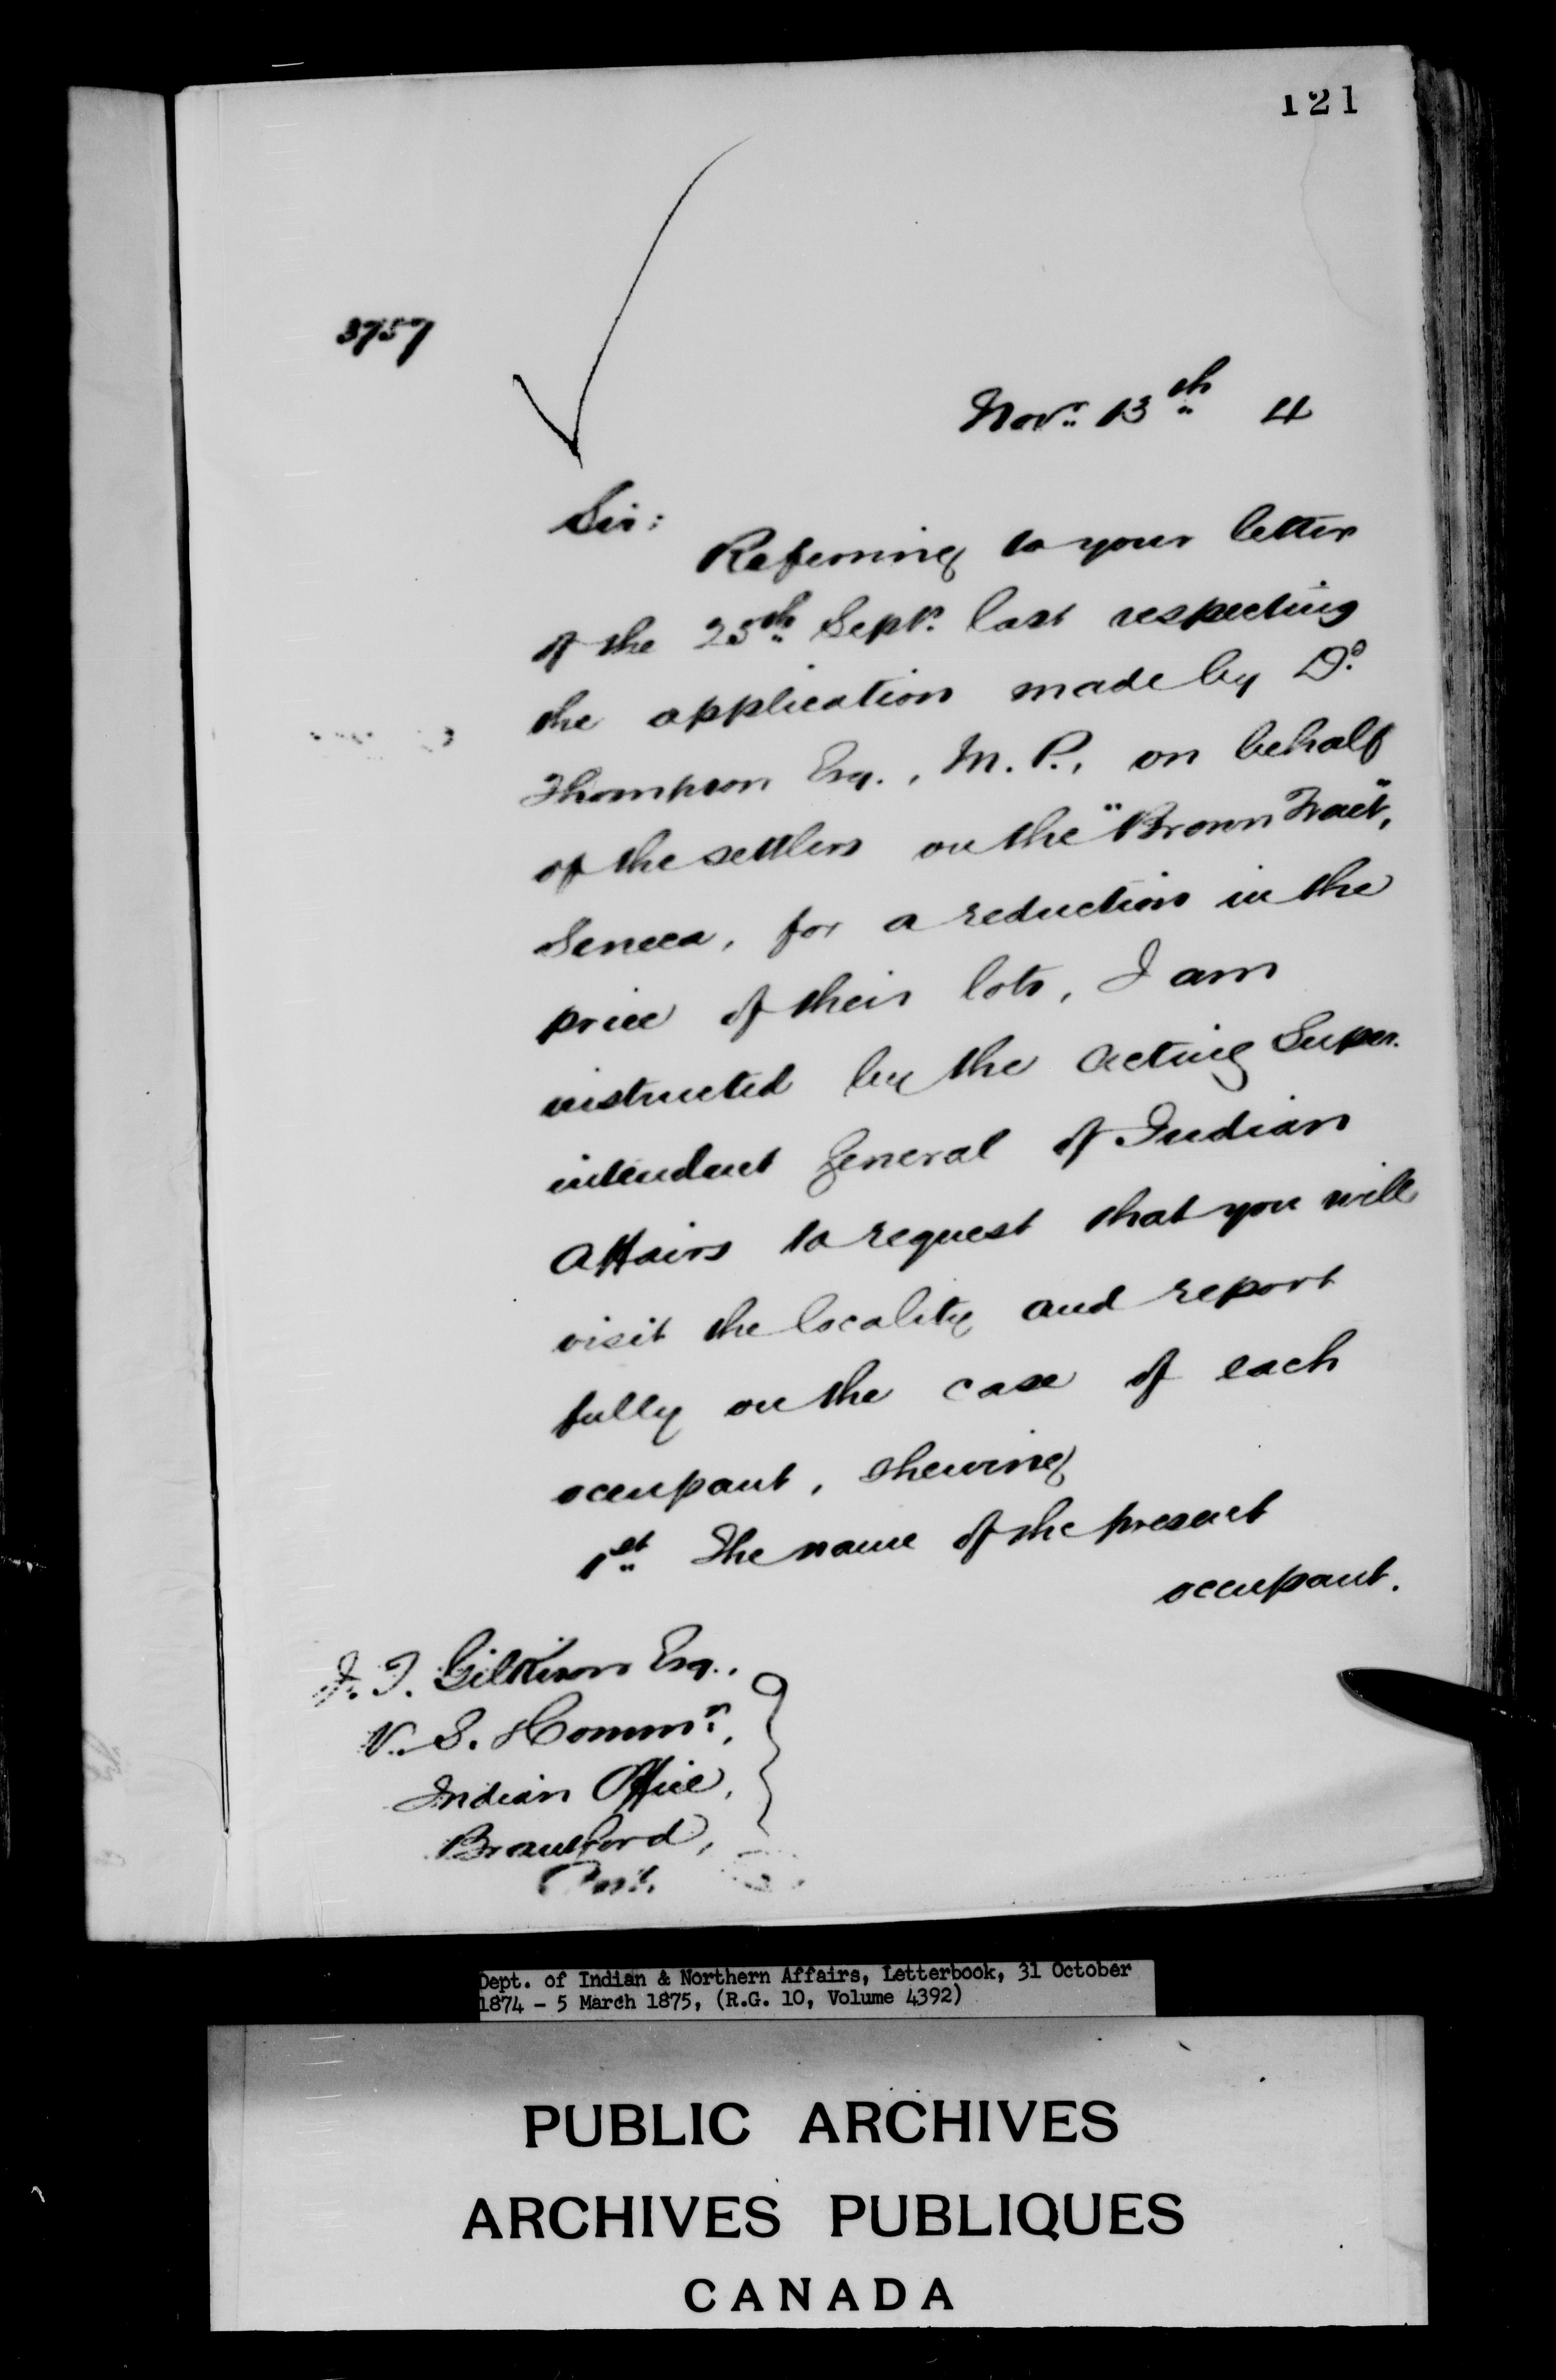 121
3757
Novr. 13th 4
Sir:
Referring to your letter
of the 25th Septr. last respecting
the application made by Dd.
Thompson Esq., M.P., on behalf
of the settlers on the "Brown Tract",
Seneca, for a reduction in the
price of their lots, I am
instructed by the Acting Super-
intendent General of Indian
Affairs to request that you will
visit the locality and report
fully on the case of each
occupant, shewing
1st The name of the present
occupant.
J. T. Gilkison Esq.,
V. S. & Commr.,
Indian Office,
Brantford,
Ont.
Dept. of Indian & Northern Affairs, Letterbook, 31 October
1874 - 5 March 1875, (R.G. 10, Volume 4392)
PUBLIC ARCHIVES
ARCHIVES PUBLIQUES
CANADA